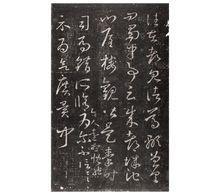 往在都見諸葛顒曾
具問蜀中事云成都城池
門屋樓觀皆是秦時
司馬錯所脩令人遠想慨然為爾不信一一示
為欲廣異聞